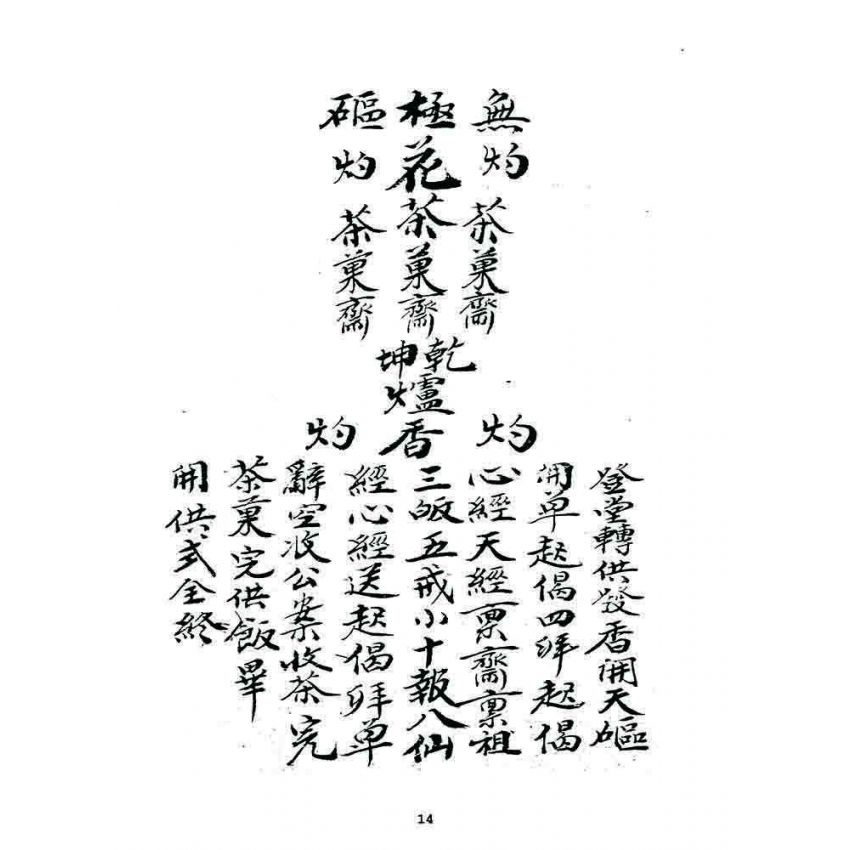 無灼茶菓齋
極花茶菓齋
灼茶菓齋
乾坤
爐香
灼
灼
登堂轉供發香開天
開单起偈四拜起偈
心經天經稟齋稟祖
三皈五戒小十報八仙
經心經送起偈拜单
辭空收公案收茶完
茶菓完供飯畢
開供式全終
14